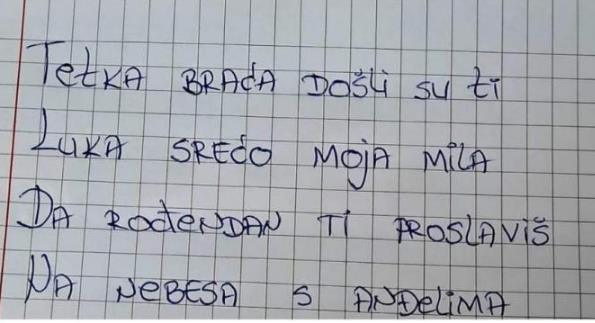 Tetka BRAĆA DOŠLI SU ti
LUKA SREĆO MOJA MILA
DA ROđENDAN TI PROSLAVIŠ
NA NEBESA S ANĐELIMA